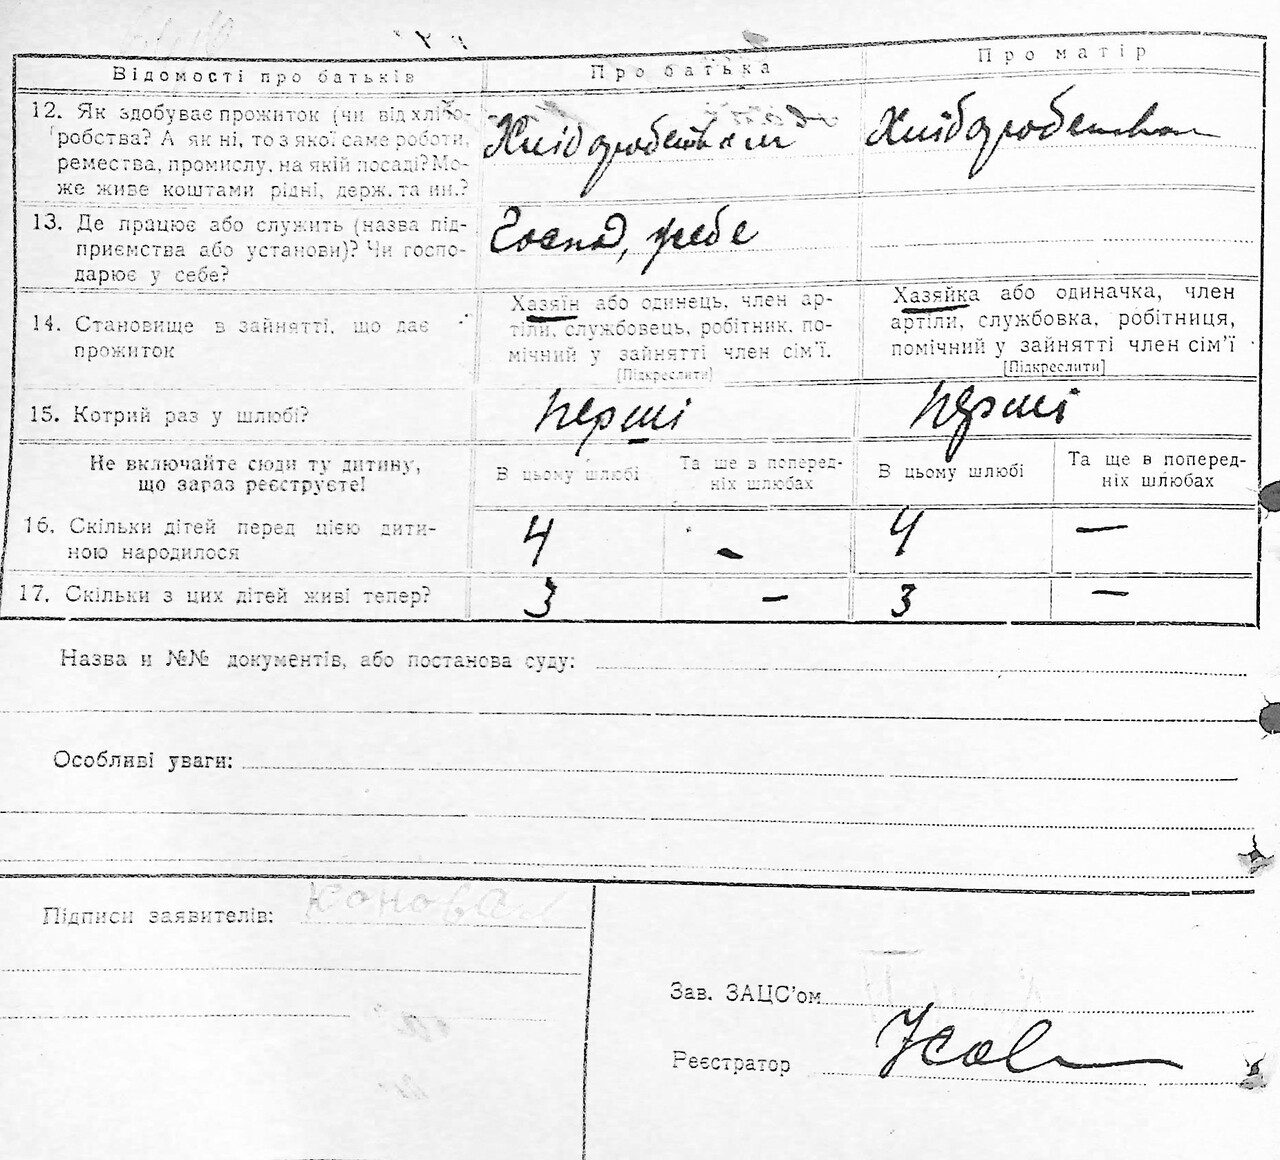 Відомості про батьків
Про батька
Про матір
12. Як здобуває прожиток (чи від хлібо-
робства? А як ні, то з якої саме роботи,
ремества, промислу, на якій посаді? Мо-
же живе коштами рідні, держ. та ин.?
Хліборобством
Хліборобством
13. Де працює або служить (назва під-
приємства або установи)? Чи госпо-
дарює у себе?
Господ, у себе
14. Становище в зайнятті, що дає
прожиток
Хазяїн або одинець, член ар-
тіли, службовець, робітник, по-
мічний у зайнятті член сім'ї.
[Підкреслити]
Хазяйка або одиначка, член
артіли, службовка, робітниця,
помічний у зайнятті член сім'ї
[Підкреслити]
15. Котрий раз у шлюбі?
перші
перші
Не включайте сюди ту дитину,
що зараз реєструєте!
В цьому шлюбі
Та ще в поперед-
ніх шлюбах
В цьому шлюбі
Та ще в поперед-
ніх шлюбах
16. Скільки дітей перед цією дити-
ною народилося
4
-
4
—
17. Скільки з цих дітей живі тепер?
3
-
3
—
Назва и №№ документів, або постанова суду:
Особливі уваги:
Підписи заявителів:
Зав. ЗАЦС'ом
Реєстратор